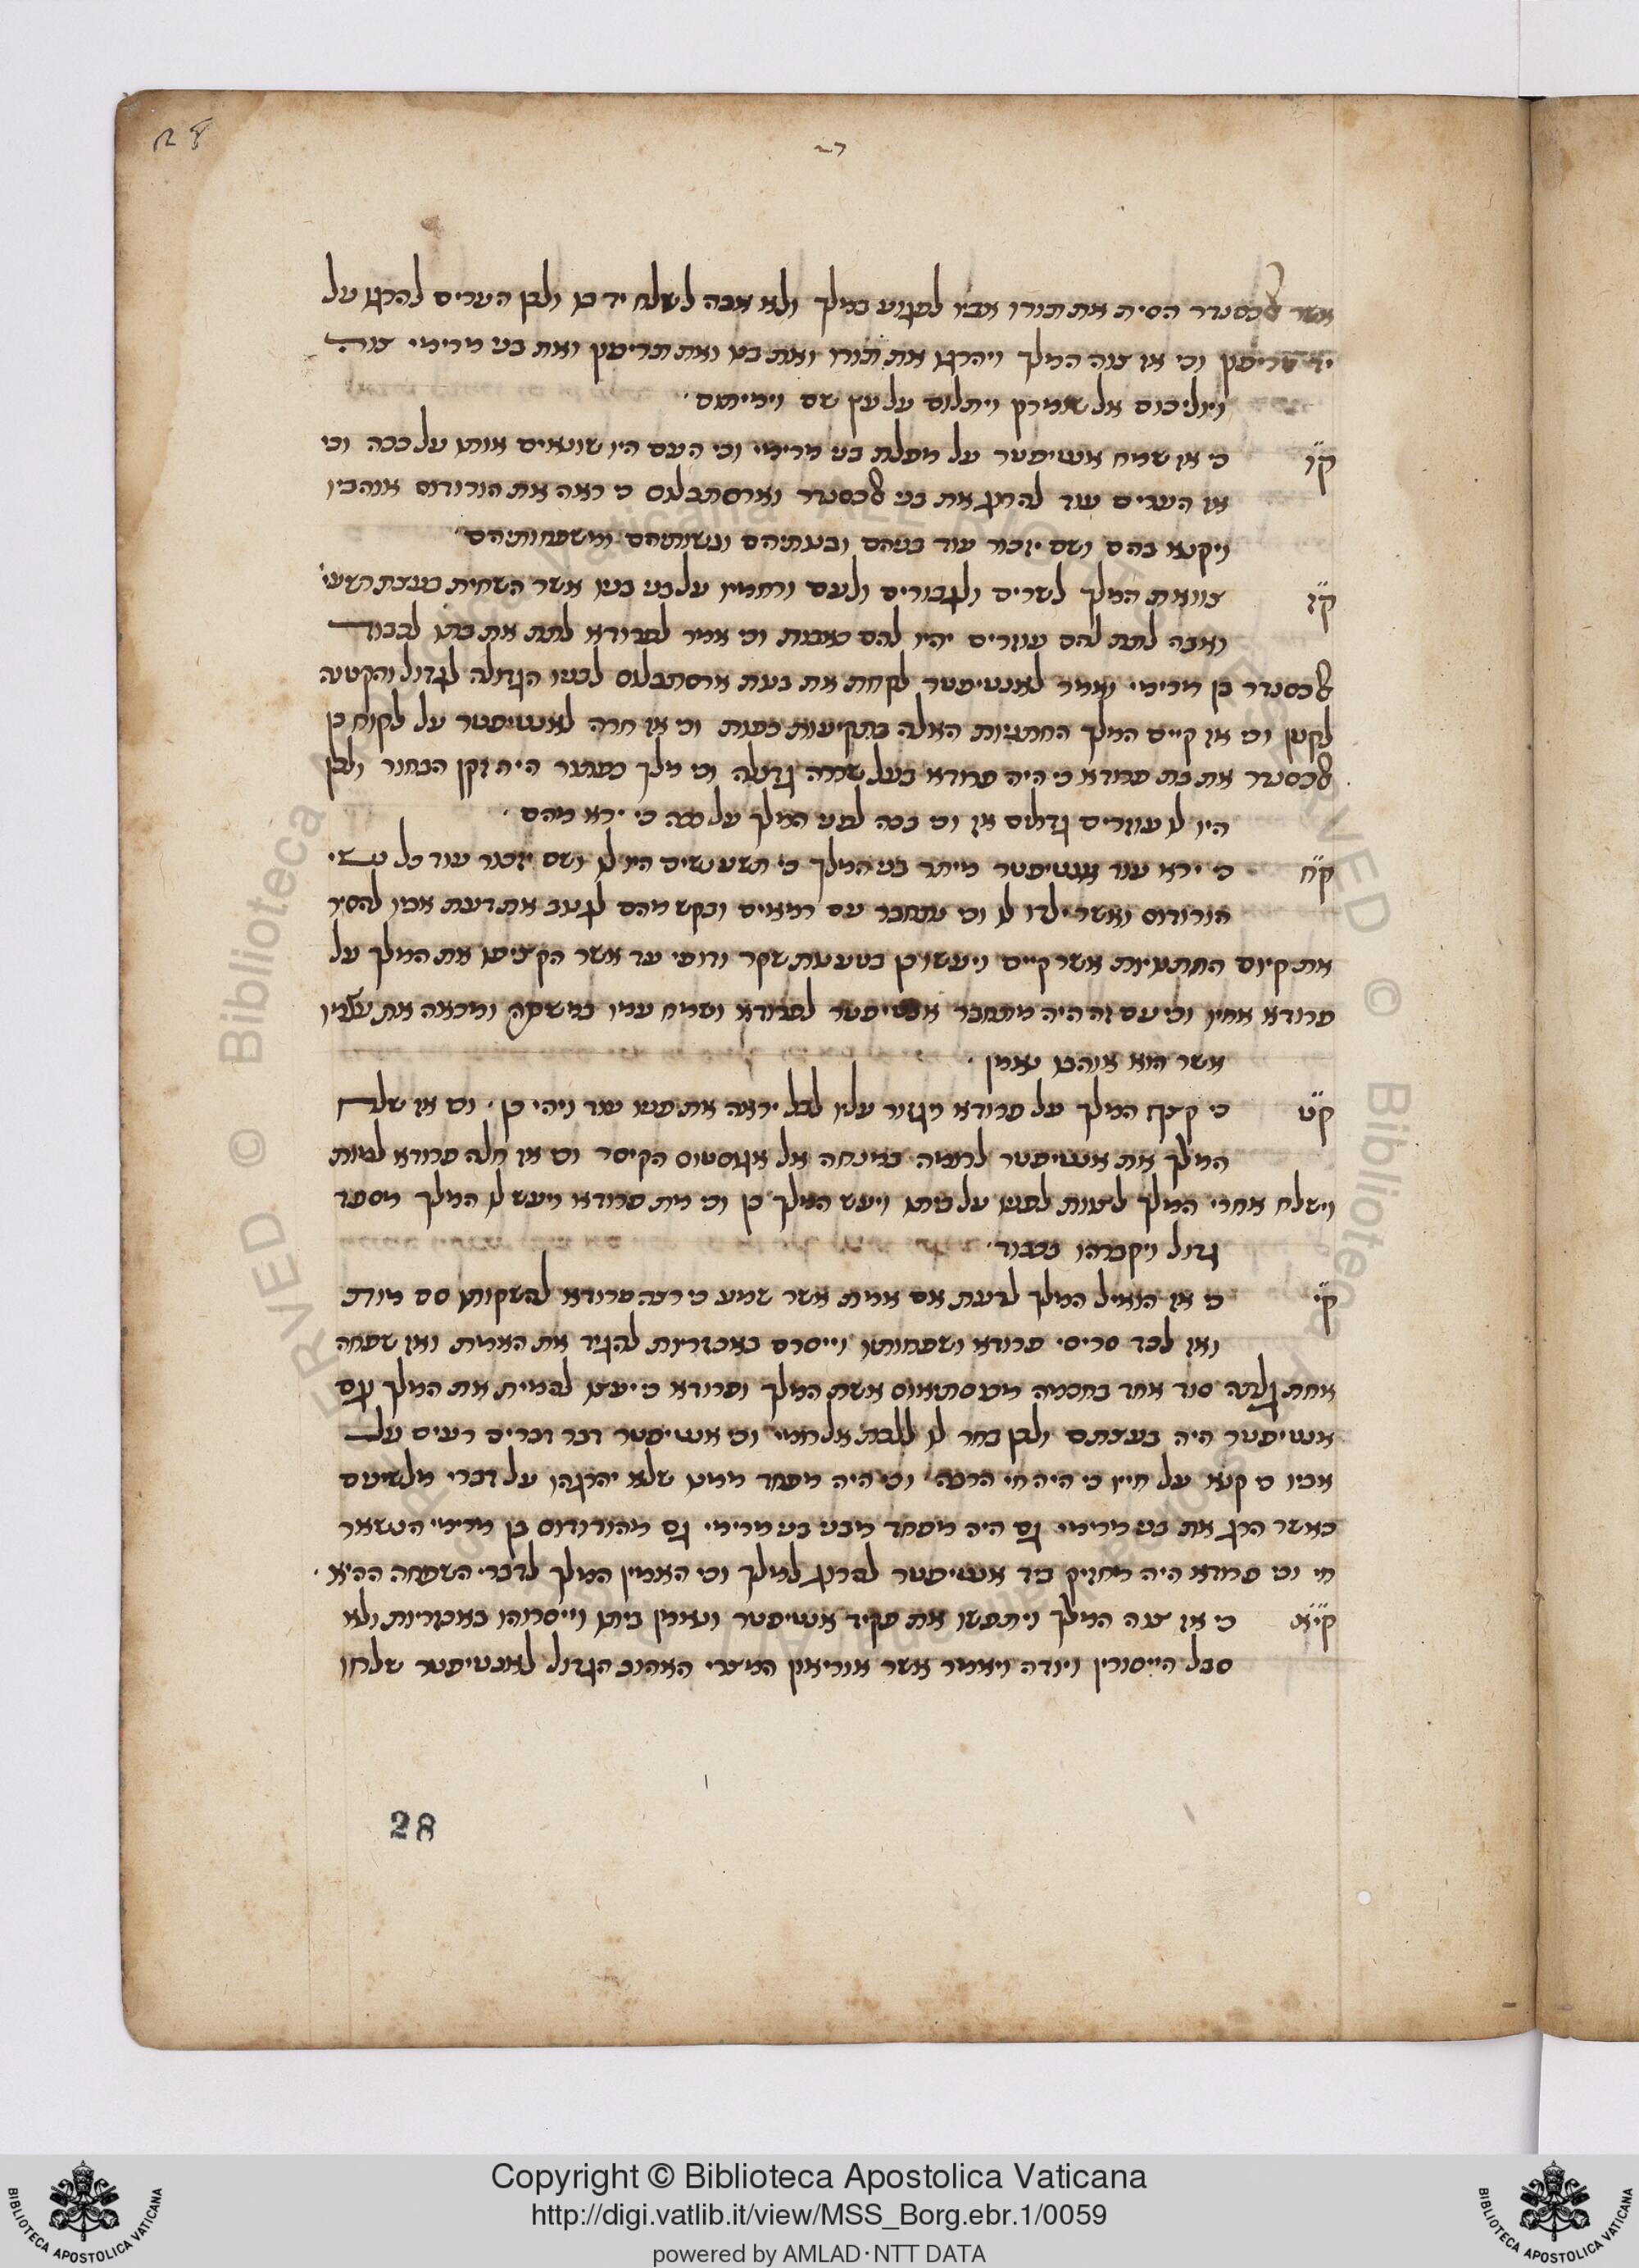 28
אשר אלכסנדר הסית את תורו אביו לפגוע במלך ולא אבה לשלח יד בו ולכן הערים להרגו על
יד טריפון וכי אז צוה המלך ויהרגו את תורו ואת בנו ואת תריפון ואת בני מרימי צוה
ויוליכום אל שומרון ויתלום על עץ שם וימיתום
קו כי אז שמח אנטיפטר על מפלת בני מרימי וכי העם היו שונאים אותו על ככה וכי
אז הערים עוד להרוג את בני אלכסנדר וארסתבלוס כי ראה את הורודוס אוהבין
ויקנא בהם ושם יזכור עוד בניהם ובנותיהם ונשותיהם ומשפחותיהם
קז צוואת המלך לשרים ולגבורים ולעם ורחמיו על בני בניו אשר השחית בעצת רשעי
ואבה לתת להם עוזרים יהיו להם כאבות וכי אמר לפרודא לתת את בתו לבכור
אלכסנדר בן מרימי ואמר לאנטיפטר לקחת את בנת ארסתבלוס לבנו הגדולה לגדול והקטנה
לקטן וכי אז קיים המלך החתנות האלה בתקיעות כפות וכי אז חרה לאנטיפטר על לקוח בן
אלכסנדר את בת פרודא כי היה פרודא בעל שררה גדולה וכי מלך כפתור היה זקן הבחור ולכן
היו לו עוזרים גדולים אז וכי בכה לפני המלך על ככה כי ירא מהם
קח כי ירא עוד אנטיפטר מיתר בני המלך כי תשע נשים היו לו ושם יזכור עוד כל נשי
הורודוס ואשר ילדו לו וכי נתחבר עם רמאים ובקש מהם לגנב את דעת אביו להסיר
את קיום החתניות אשר קיים ויעשו כן בטענת שקר ודופי עד אשר הקציפו את המלך על
פרודא אחיו וכי עם זה היה מתחבר אנטיפטר לפרודא ושמח עמו במשתה ומראה את עצמו
אשר הוא אוהבו נאמן
קט כי קצף המלך על פרודא ויגזור עליו לבל יראה את פניו עוד ויהי כן וכי אז שלח
המלך את אנטיפטר לרומה במנחה אל אגוסטוס הקיסר וכי אז חלה פרודא למות
וישלח אחרי המלך לצוות לפניו על ביתו ויעש המלך כן וכי מת פרודא ויעש לו המלך מספד
גדול ויקברהו בכבוד
קי כי אז הואיל המלך לדעת אם אמת אשר שמע כי רצה פרודא להשקותו סם מות
ואז לכד סריסי פרודא ושפחותיו וייסרם באכזריות להגיד את האמת ואז שפחה
אחת גלתה סוד אחד בחכמה אשת המלך ופרודא כי יעצו להמית את המלך וגם
אנטיפטר היה בעצתם ולכן בחר לו ללכת אל רומי וכי אנטיפטר דבר דברים רעים על
אביו כי קנא על חייו כי היה חי הרבה וכי היה מפחד ממנו שלא יהרגהו על דברי מלשינים
כאשר הרג את בני מרימי גם היה מפחד מבני בני מרימי גם מהורודוס בן מרימי הנשאר
חי וכי פרודא היה מחזיק ביד אנטיפטר להרוג למלך וכי האמין המלך לדברי השפחה ההיא
קיא כי אז צוה המלך ויתפשו את פקיד אנטיפטר ונאמן ביתו וייסרוהו באכזריות ולא
סבל הייסורין ויודה ויאמר אשר המצרי האהוב הגדול לאנטיפטר שלחו
28
Copyright © Biblioteca Apostolica Vaticana
http://digi.vatlib.it/view/MSS_Borg.ebr.1/0059
powered by AMLAD·NTT DATA